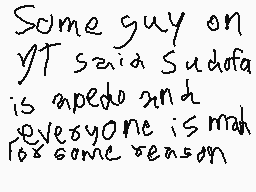 Some guy on
YT said Sudofa
is a pedo and
everyone is mad
for some reason